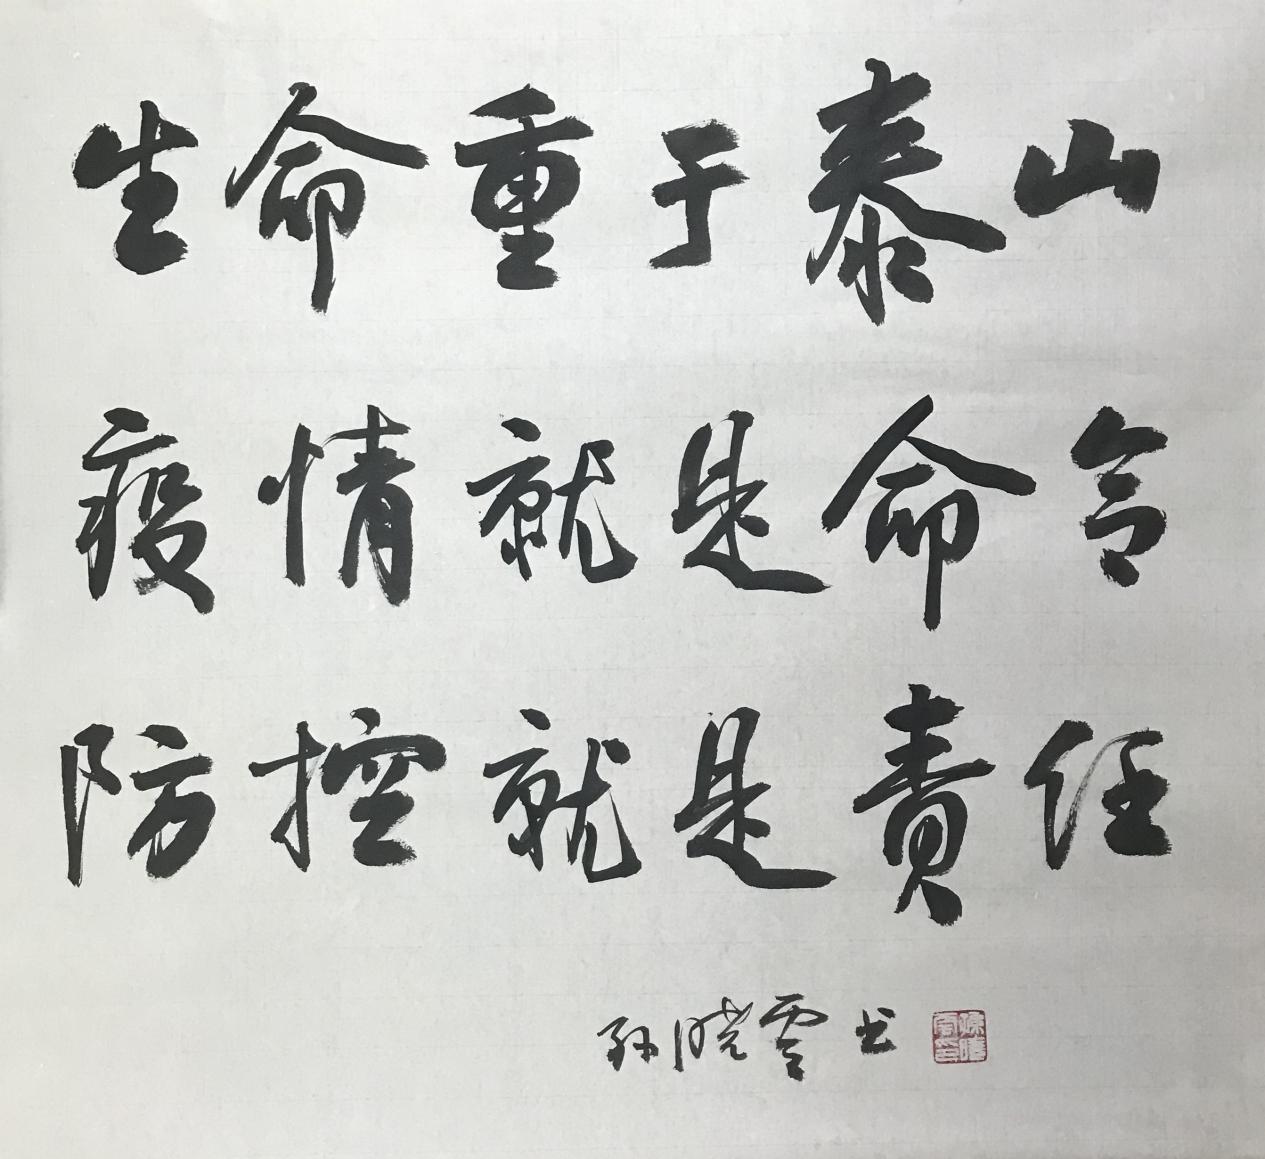 生命重于泰山
疫情就是命令
防控就是責任
孙晓雲书